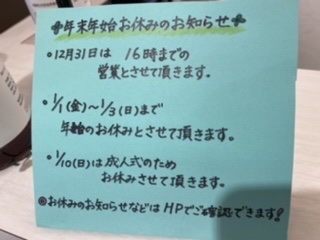 年末年始お休みのお知らせ
・12月31日は 16時までの
営業とさせて頂きます。
・1/1(金)〜1/3(日)まで
年始のお休みとさせて頂きます。
・1/10(日)は成人式のため
お休みさせて頂きます。
◎お休みのお知らせなどはHPでご確認できます!